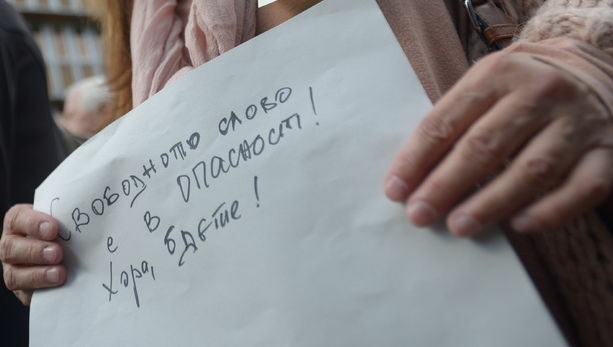 Свободното слово
е в опасност!
Хора, бдете!